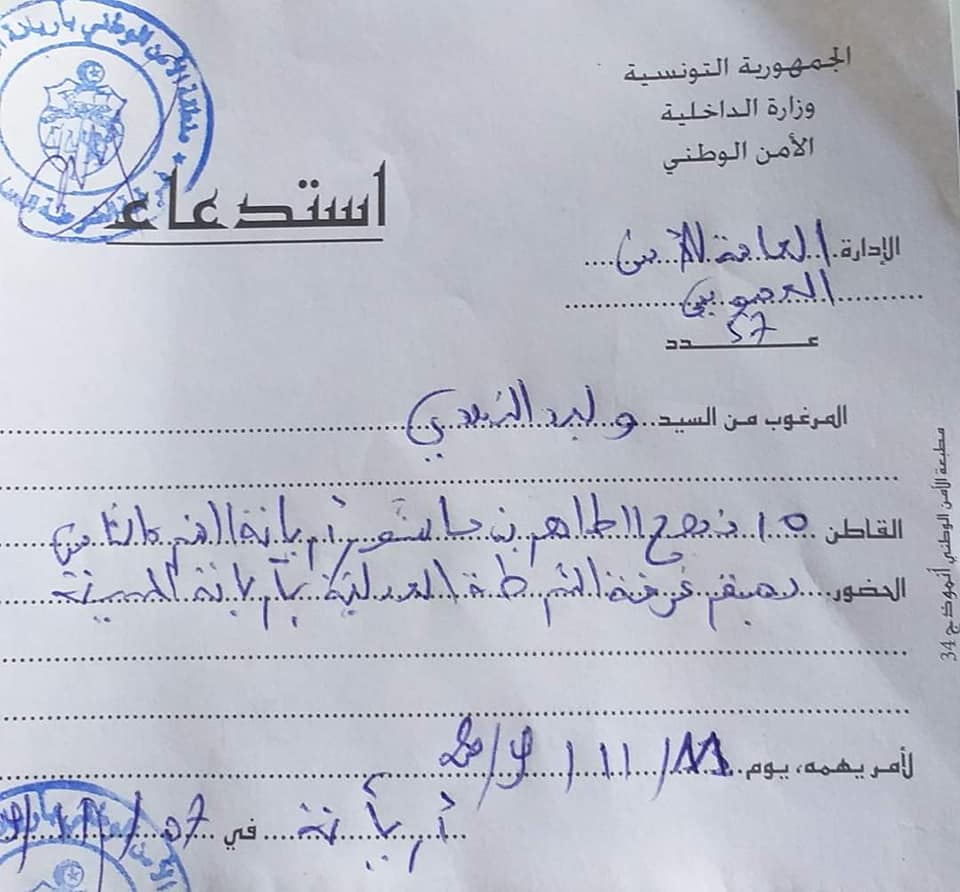 الجمهورية التونسية
وزارة الداخلية
الأمن الوطني
استدعاء
الإدارة العامة للأمن
العمومي
عدد 57
المرغوب من السيد وليد الزيدي
القاطن 10 نهج الطاهر بن عاشور أريانة
الحضور بمقر فرقة الشرطة العدلية بأريانة المدينة
لأمر يهمه، يوم 11/11/
أريانة في 07/11/
مطبعة الأمن الوطني أنموذج 34
منطقة الأمن الوطني بأريانة